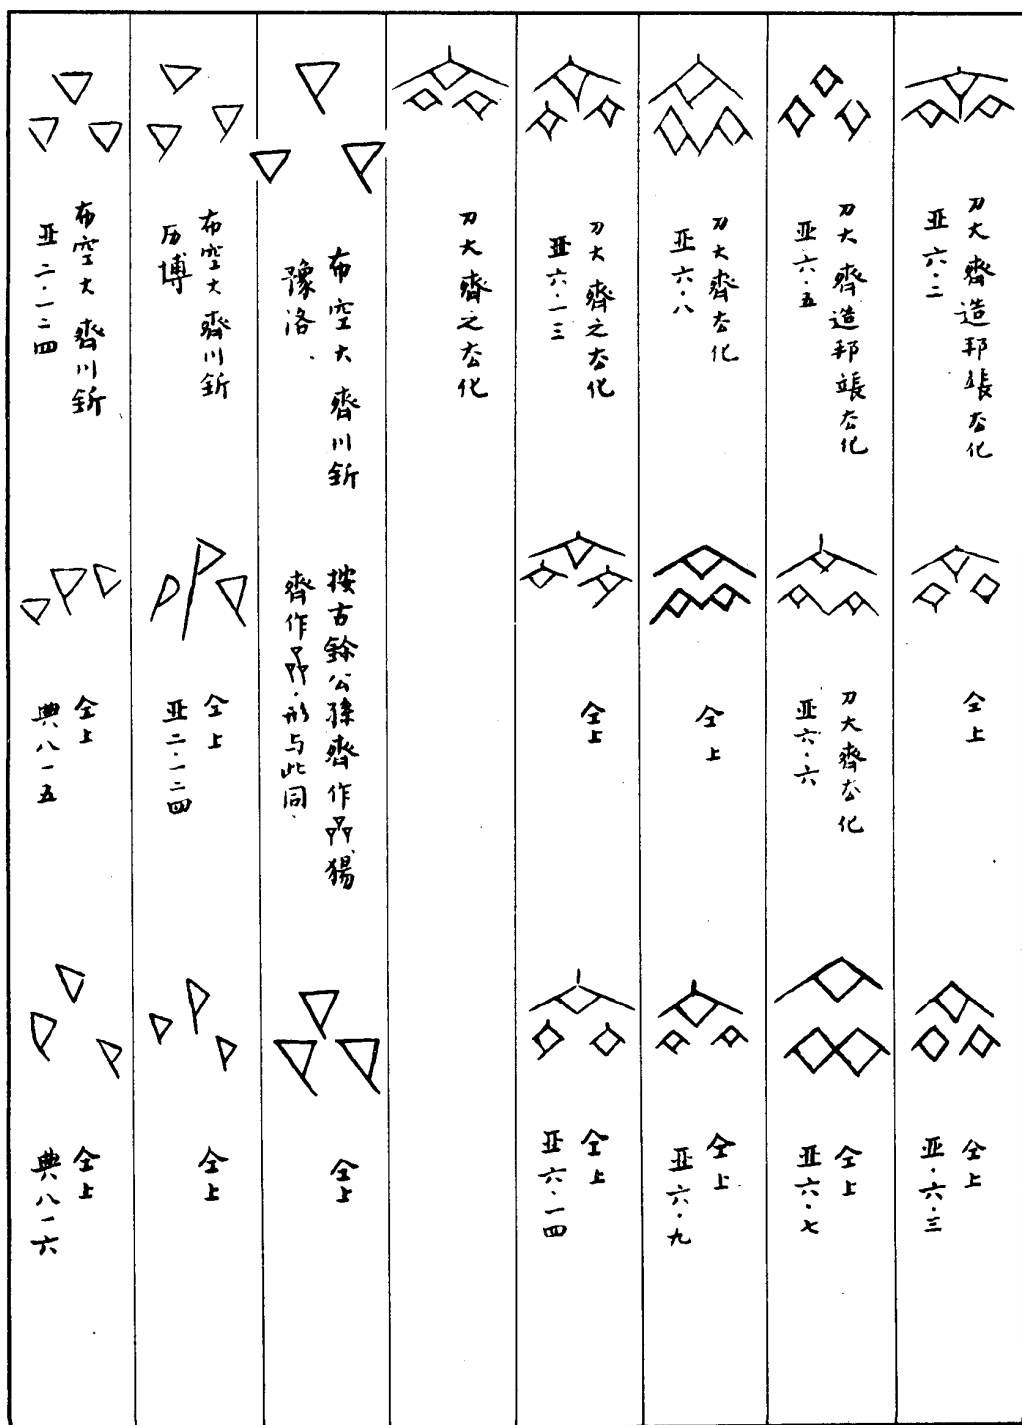 刀大 齊造邦𨱗厺化
亚六·二
仝上
仝上
亚·六·三
刀大 齊造邦𨱗厺化
亚六·五
刀大 齊厺化
亚六·六
仝上
亚六·七
刀大 齊厺化
亚六·八
仝上
仝上
亚六·九
刀大 齊之厺化
亚六·一三
仝上
仝上
亚六·一四
刀大 齊之厺化
布空大 齊川釿
豫洛·
按古鉩公孫齊作 猲
齊作 ·形与此同·
仝上
布空大 齊川釿
历博
仝上
亚二·一二四
仝上
布空大 齊川釿
亚二·一二四
仝上
典八一五
仝上
典八一六